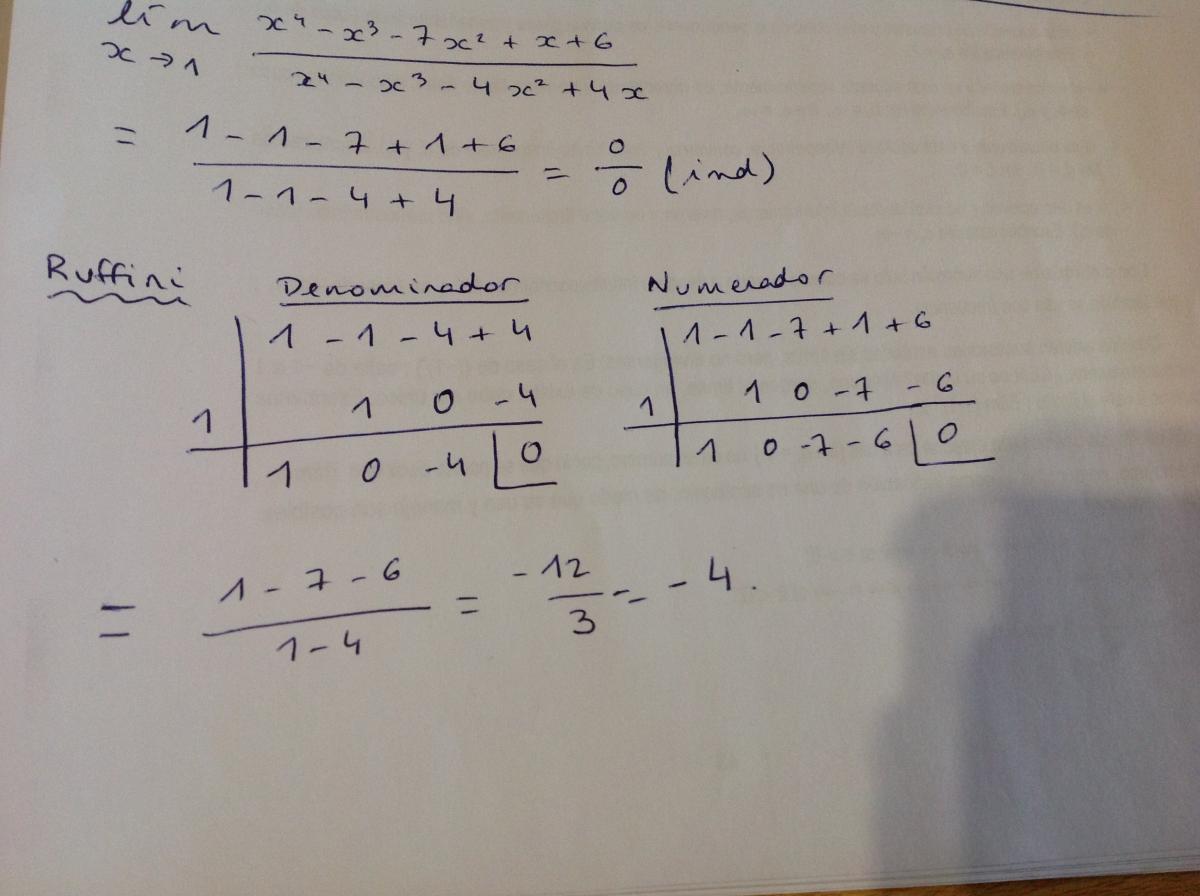 lím x→1 x⁴ - x³ - 7x² + x + 6 / x⁴ - x³ - 4x² + 4x
= 1 - 1 - 7 + 1 + 6 / 1 - 1 - 4 + 4 = 0/0 (ind)
Ruffini
Denominador
1 - 1 - 4 + 4
1 | 1 0 - 4
1 0 - 4 | 0
Numerador
1 - 1 - 7 + 1 + 6
1 | 1 0 - 7 - 6
1 0 - 7 - 6 | 0
= 1 - 7 - 6 / 1 - 4 = - 12 / 3 = - 4.